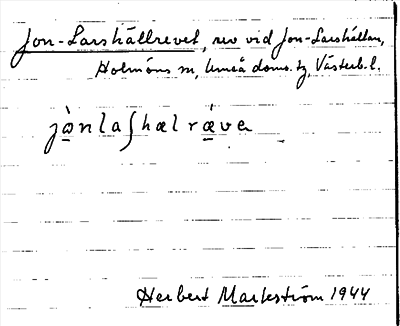 Jon-Larshällrevet, rev vid Jon-Larshällan,
Holmöns sn, Umeå doms. tg, Västerb. l.
jònlaʃhælrǽvə
Herbert Markström 1944